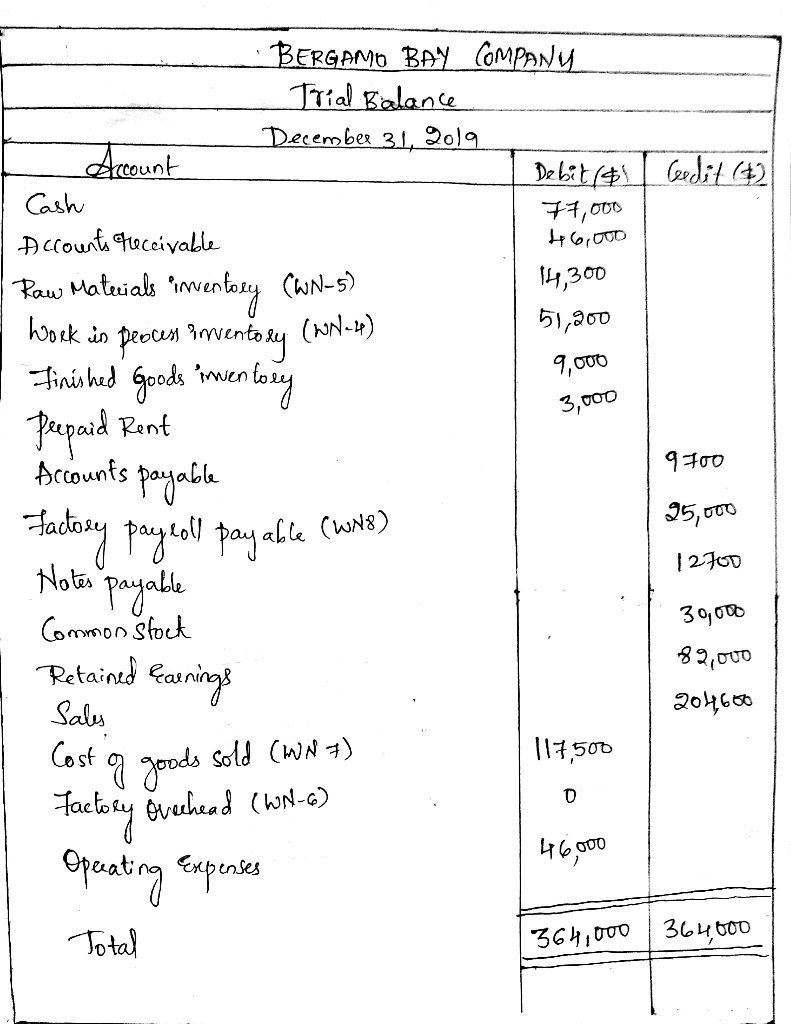 BERGAMO BAY COMPANY
Trial Balance
December 31, 2019
Account Debit ($) Credit ($)
Cash 77,000
Accounts Receivable 46,000
Raw Materials inventory (WN-5) 14,300
Work in process inventory (WN-4) 51,200
Finished Goods inventory 9,000
Prepaid Rent 3,000
Accounts payable 9700
Factory payroll payable (WN8) 25,000
Notes payable 12700
Common stock 30,000
Retained Earnings 82,000
Sales 204,600
Cost of goods sold (WN 7) 117,500
Factory Overhead (WN-6) 0
Operating Expenses 46,000
Total 364,000 364,000